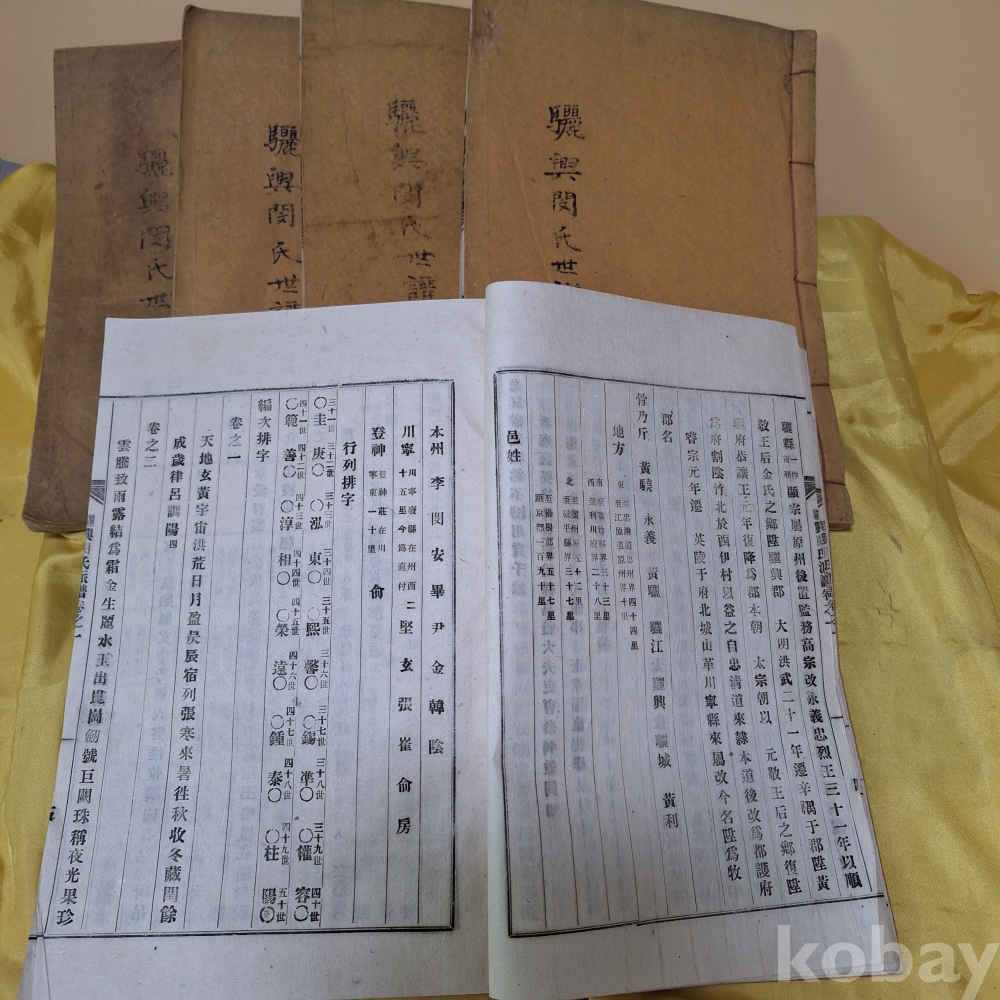 驪興閔氏世
驪興閔氏世譜
驪興閔氏世譜
驪興閔氏世
驪縣
顯宗屬原州後置監務高宗改永義忠烈王三十一年以順
敬王后金氏之鄉陞驪興郡 大明洪武二十一年遷辛禑于郡陞黃
驪府恭讓王元年復降爲郡本朝 太宗朝以 元敬王后之鄉復陞
爲府割陰竹北於西伊村以益之自忠淸道來隸本道後改爲都護府
睿宗元年遷 英陵于府北城山革川寧縣來屬改今名陞爲牧
郡名
骨乃斤 黃驍 永義 黃驪 驪江 驪興 驪城 黃利
地方
東至江原道原州界十里
邑姓
本州李閔安畢尹金韓陰
川寧 川寧廢縣在州西二十五里今爲直村 堅玄張崔俞房
登神 登神莊在川寧東一十里 俞
行列排字
三十一世 三十二世 三十三世 三十四世 三十五世 三十六世 三十七世 三十八世 三十九世 四十世
〇圭 庚〇 〇泓 東〇 〇熙 馨〇 〇錫 準〇 〇權 容〇
四十一世 四十二世 四十三世 四十四世 四十五世 四十六世 四十七世 四十八世 四十九世 五十世
〇範 善〇 〇淳 相〇 〇榮 遠〇 〇鍾 泰〇 〇柱 陽〇
編次排字
卷之一
天地玄黃宇宙洪荒日月盈昃辰宿列張寒來暑徃秋收冬藏閏餘
成歲律呂調陽四
卷之二
雲騰致雨露結爲霜金生麗水玉出崑崗劒號巨闕珠稱夜光果珍
kobay